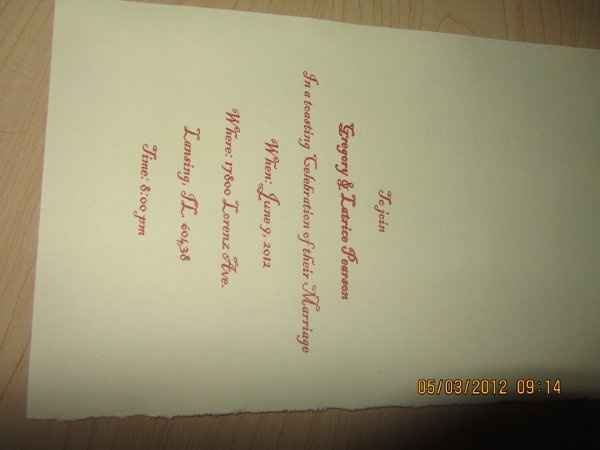 To join
Gregory & Latrice Pearson
In a toasting Celebration of their Marriage
When: June 9, 2012
Where: 17800 Lorenz Ave.
Lansing, IL. 60438
Time: 8:00 pm
05/03/2012 09:14